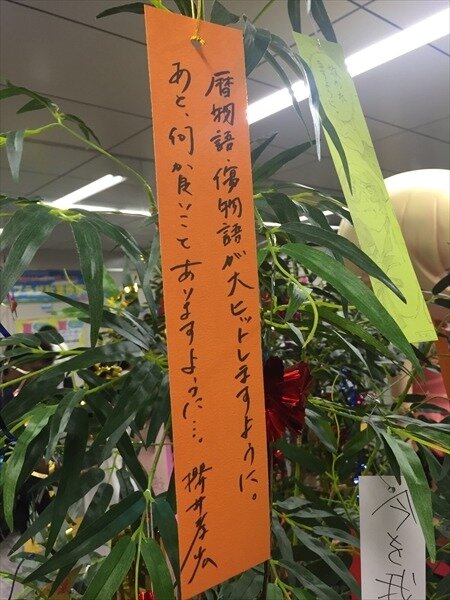 暦物語、傷物語が大ヒットしますように。
あと、何か良いことありますように…。
櫻井孝宏